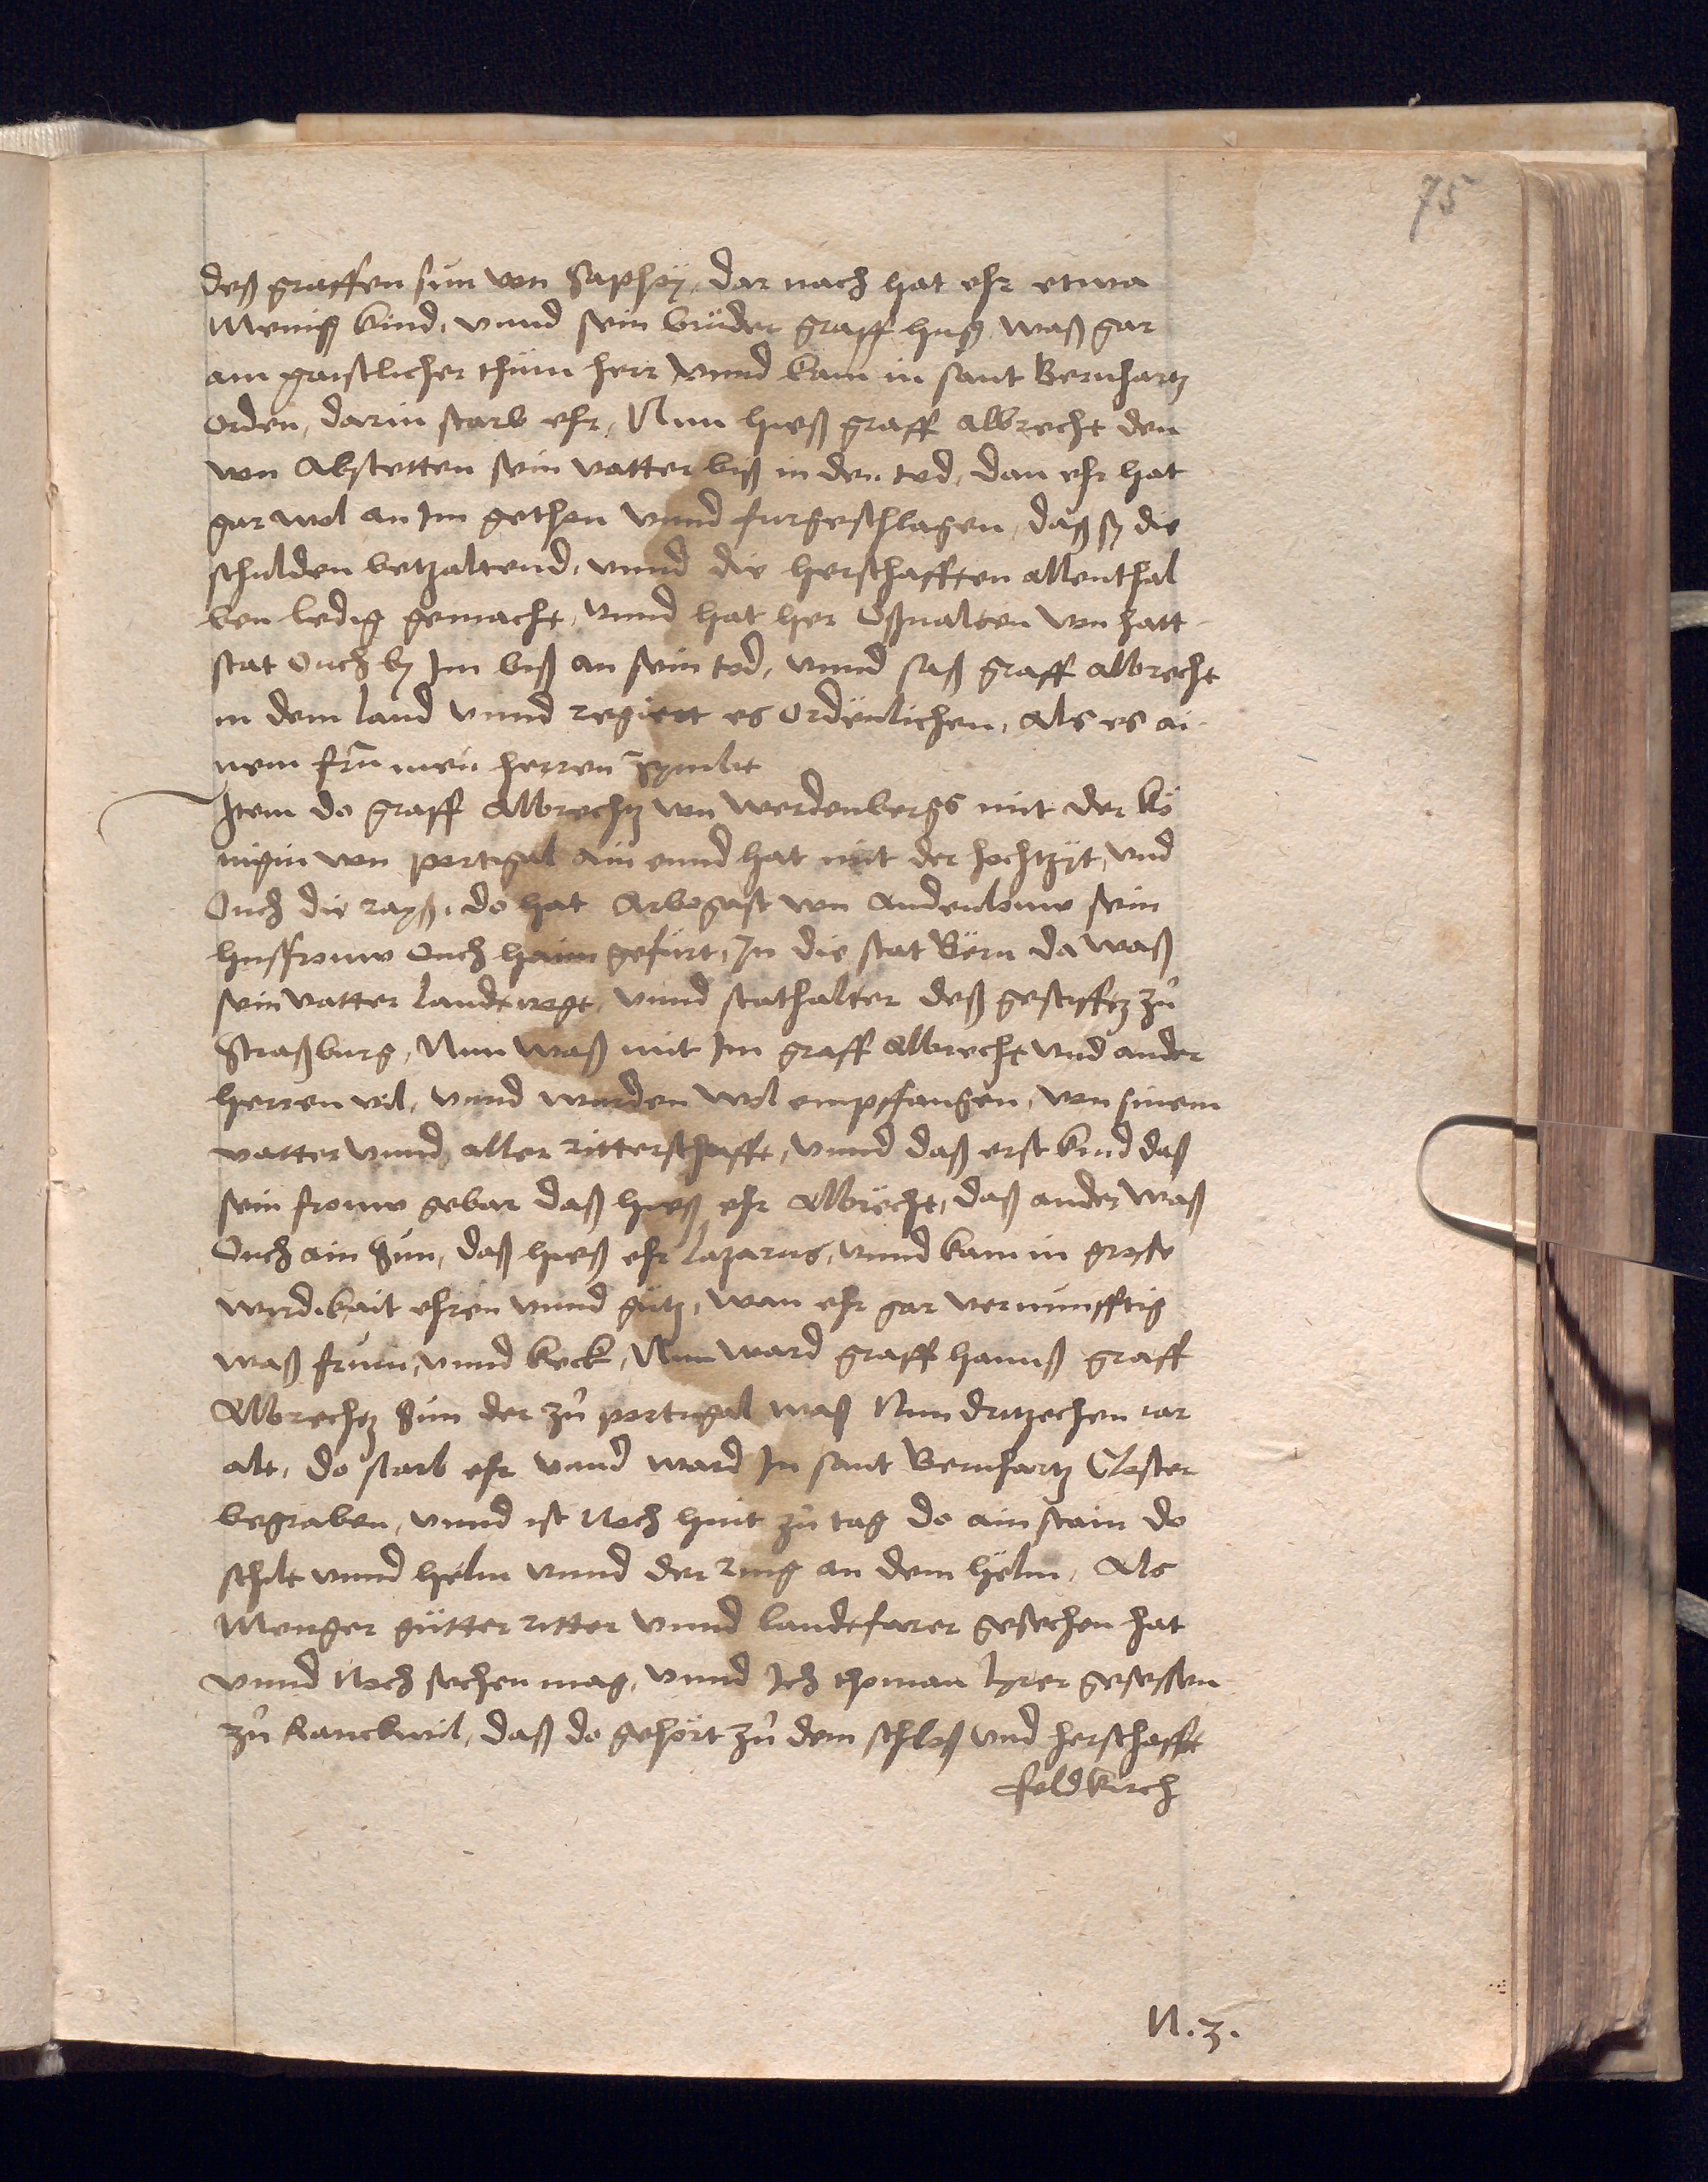 75
deß graffen sun von Saphoÿ, dar nach hat ehr etwa
Meniß kind, vnnd sein brüder graff huß waß gar
ain gaistlicher thum herr vnnd kam in sant Bernhartz
orden, darin starb ehr, Nun hieß graff albrecht den
von Abstetten sein vatter biß in den tod, dan ehr hat
gar wol an Im gethon vnnd furgeschlagen, daß sy die
schulden betzaltend, vnnd die herschafften allenthal
ben ledig gemacht, vnnd hat her Oßwalten von hatt
stat ouch by Im biß an sein tod, vnnd saß graff albrecht
in dem land vnnd regiert es ordenlichen, als es ai
nem frumen herren zymlit
Item do graff Albrechtz von werdenbergs mit der kö
nigin von portigal ain ennd hat mit der hochtzyt, vnd
Ouch die rayß, do hat Arbogast von andenlouw sein
husfrouw ouch haim gefürt, In die stat Bern da waß
sein vatter landtvogt, vnnd stathalter deß gestifftz zů
Straßburg, Nun waß mit Im graff Albrecht vnd ander
herren vil, vnnd wurden wol empffangen, von sinem
vatter vnnd aller ritterschafft, vnnd daß erst kind daß
sein frouw gebar daß hieß ehr Albrecht, daß ander waß
Ouch ain Sun, daß hieß ehr lazarus, vnnd kam in grose
wirdikait ehren vnnd gütz, wan ehr gar vernunfftig
waß frum, vnnd keck, Nun ward graff hannß graff
Albrechtz Sun der zů portugal waß Nun dritzechen iar
alt, do starb ehr vnnd ward In sant Bernhartz Closter
begraben, vnnd ist Noch hüit zů tag do ain stain do
schilt vnnd helm vnnd der ring an dem helm, Als
Menger gütter ritter vnnd landtfarer gesechen hat
vnnd Noch sechen mag, vnnd Ich thoman lyrer gesessen
zů Ranckwil, daß do gehört zů dem schloß vnd herschafft
feldkirch
N.3.